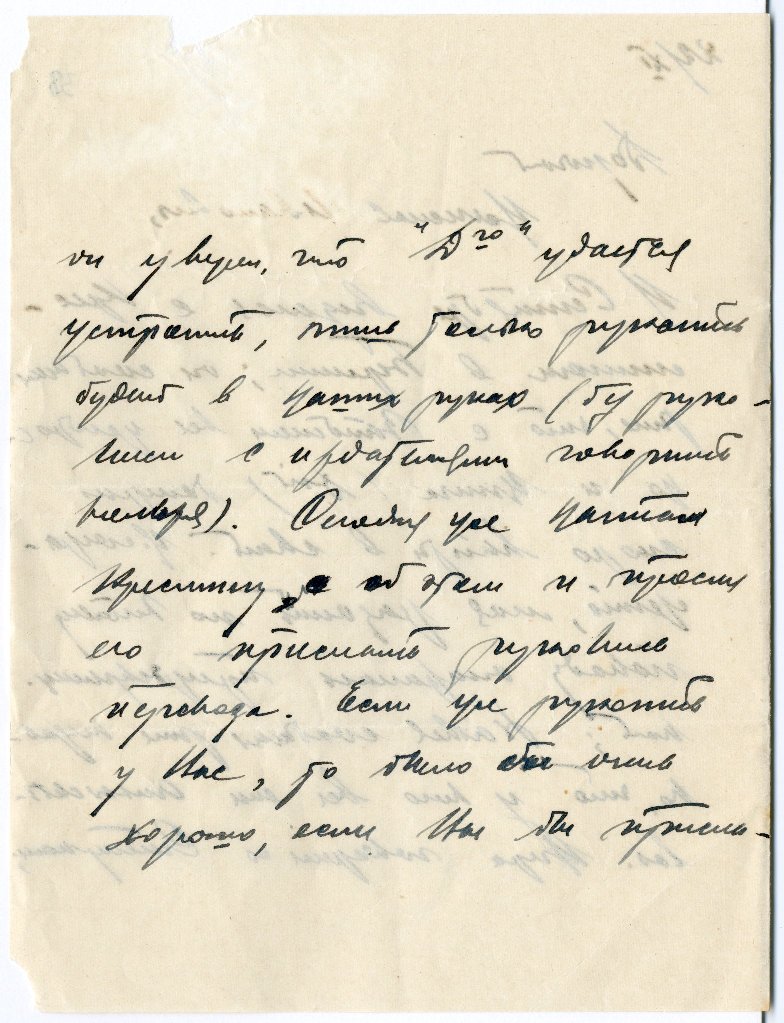 он уверен, что "Дго" удастся
устроить, лишь только рукопись
будет в наших руках (без руко-
писи с издателями говорить
нельзя). Сегодня уже написал
об этом и просил
его прислать рукопись
перевода. Если же рукопись
у Вас, то было бы очень
хорошо, если Вы бы присла-